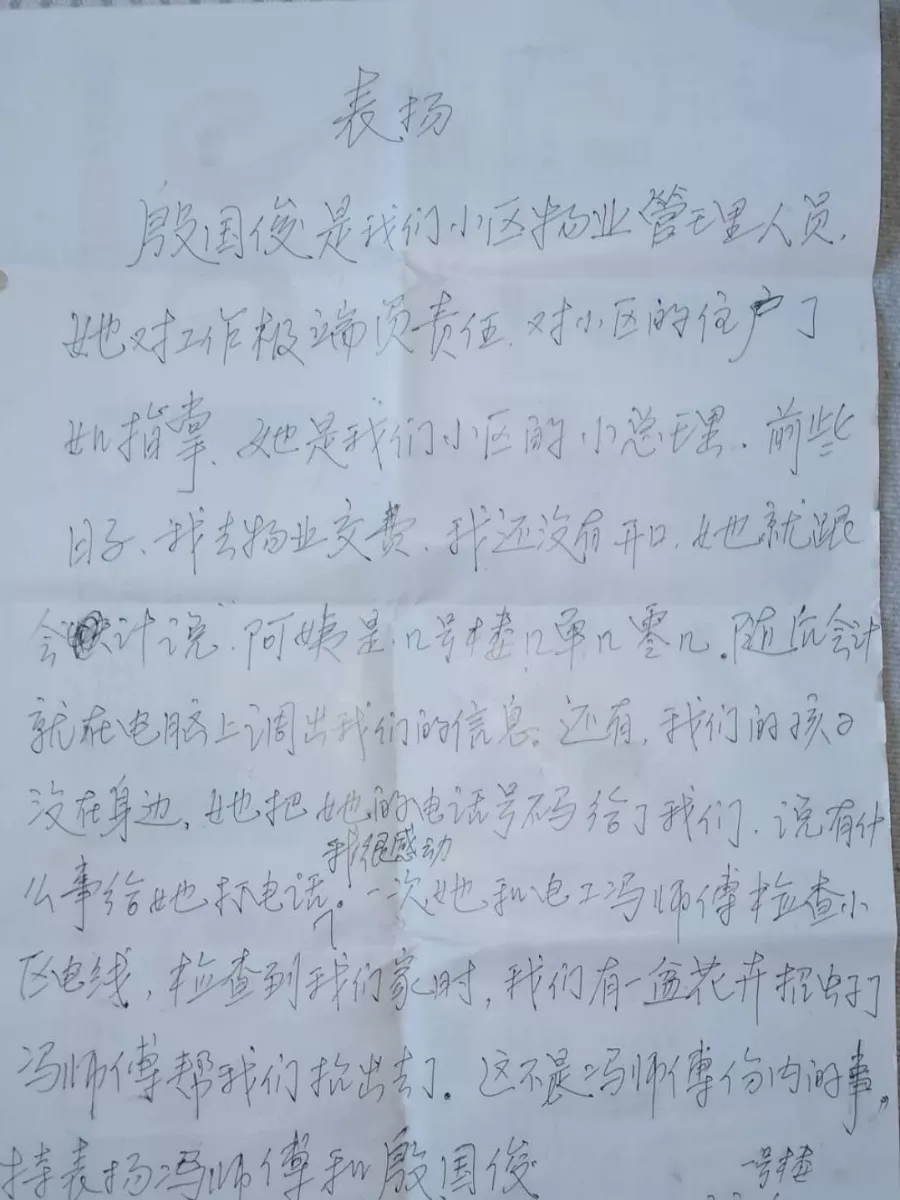 表扬
殷国俊是我们小区物业管理人员.
她对工作极端负责任.对小区的住户了
如指掌.她是我们小区的小总理.前些
日子、我去物业交费.我还没有开口.她就跟
会计说.阿姨是几号楼几单几零几.随后会计
就在电脑上调出我们的信息。还有,我们的孩子
没在身边,她把她的电话号码给了我们.说有什
我很感动
么事给她打电话。一次她和电工冯师傅检查小
区电线,检查到我们家时,我们有一盆花卉招虫子了
冯师傅帮我们抬出去了。这不是冯师傅份内的事。
持表扬冯师傅和殷国俊
号楼